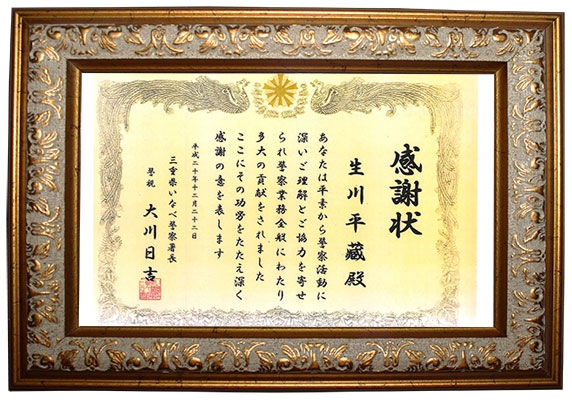 感謝状
生川平蔵殿
あなたは平素から警察活動に
深いご理解とご協力を寄せ
られ警察業務全般にわたり
多大の貢献をされました
ここにその功労をたたえ深く
感謝の意を表します
平成二十年十二月二十二日
三重県いなべ警察署長
警視 大川日吉